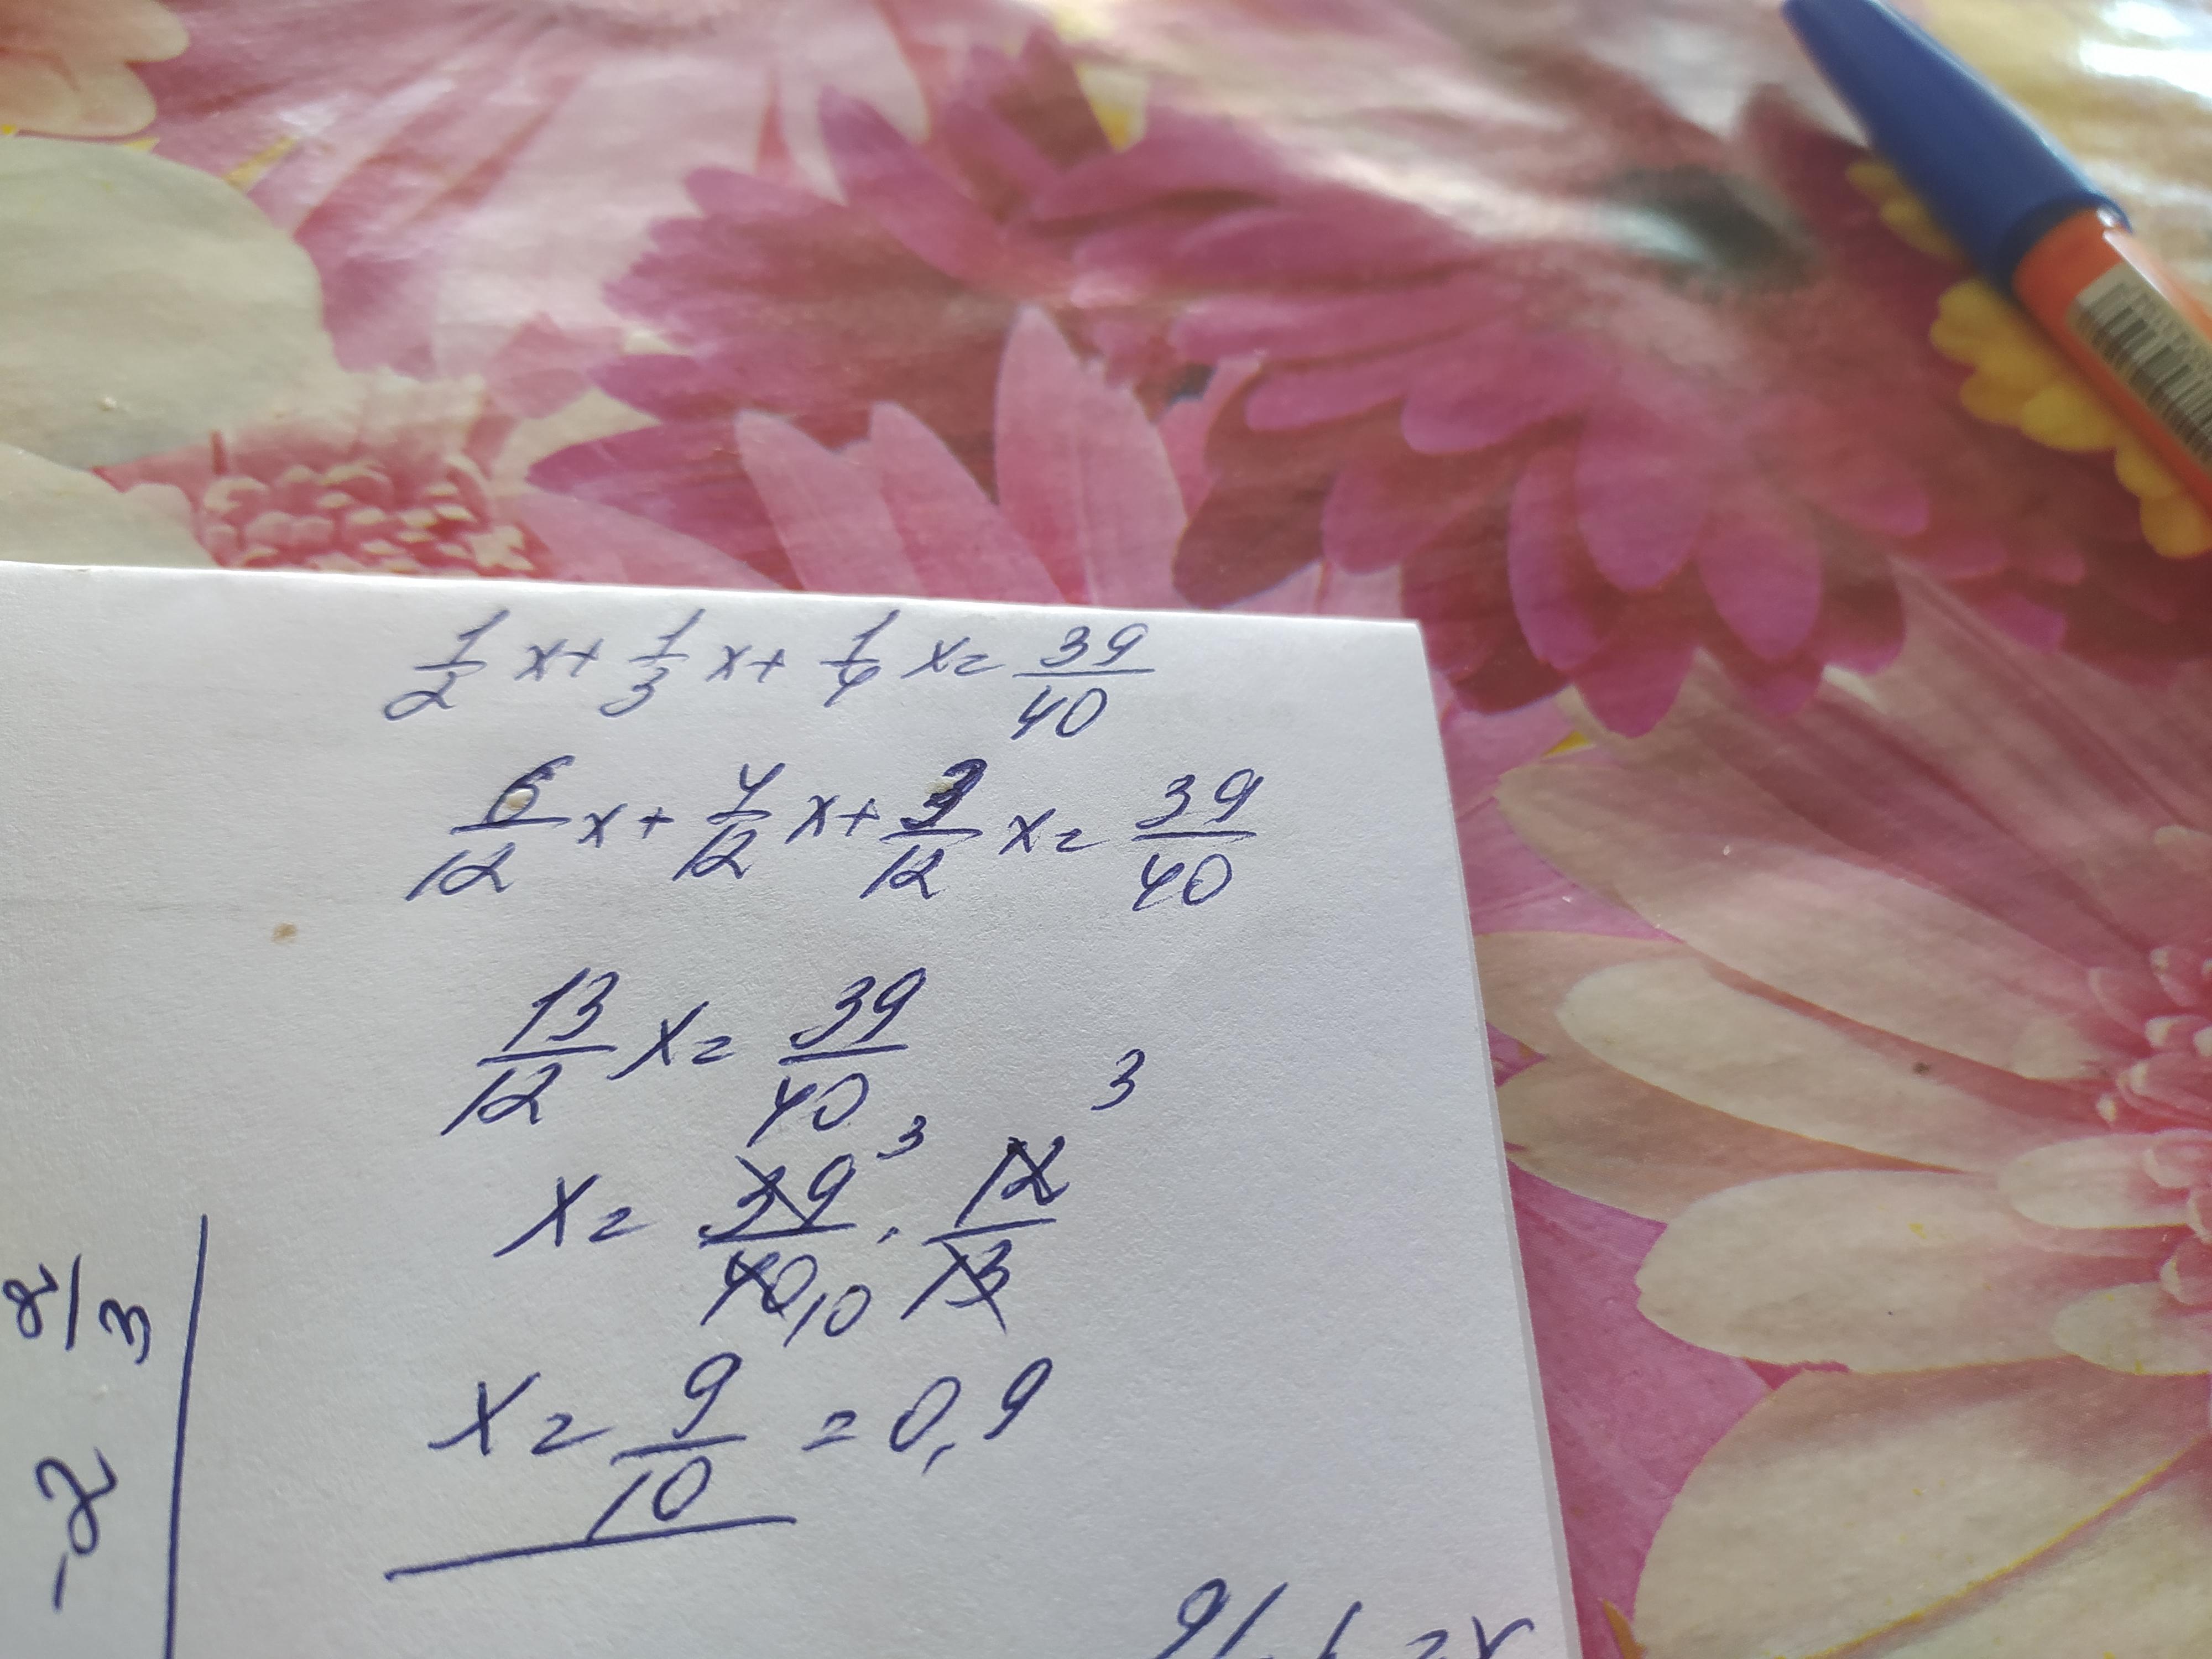 1/2 x + 1/3 x + 1/4 x = 39/40
6/12 x + 4/12 x + 3/12 x = 39/40
13/12 x = 39/40
3 3
x = 39/40 · 12/13
10
x = 9/10 = 0,9
-2 2/3